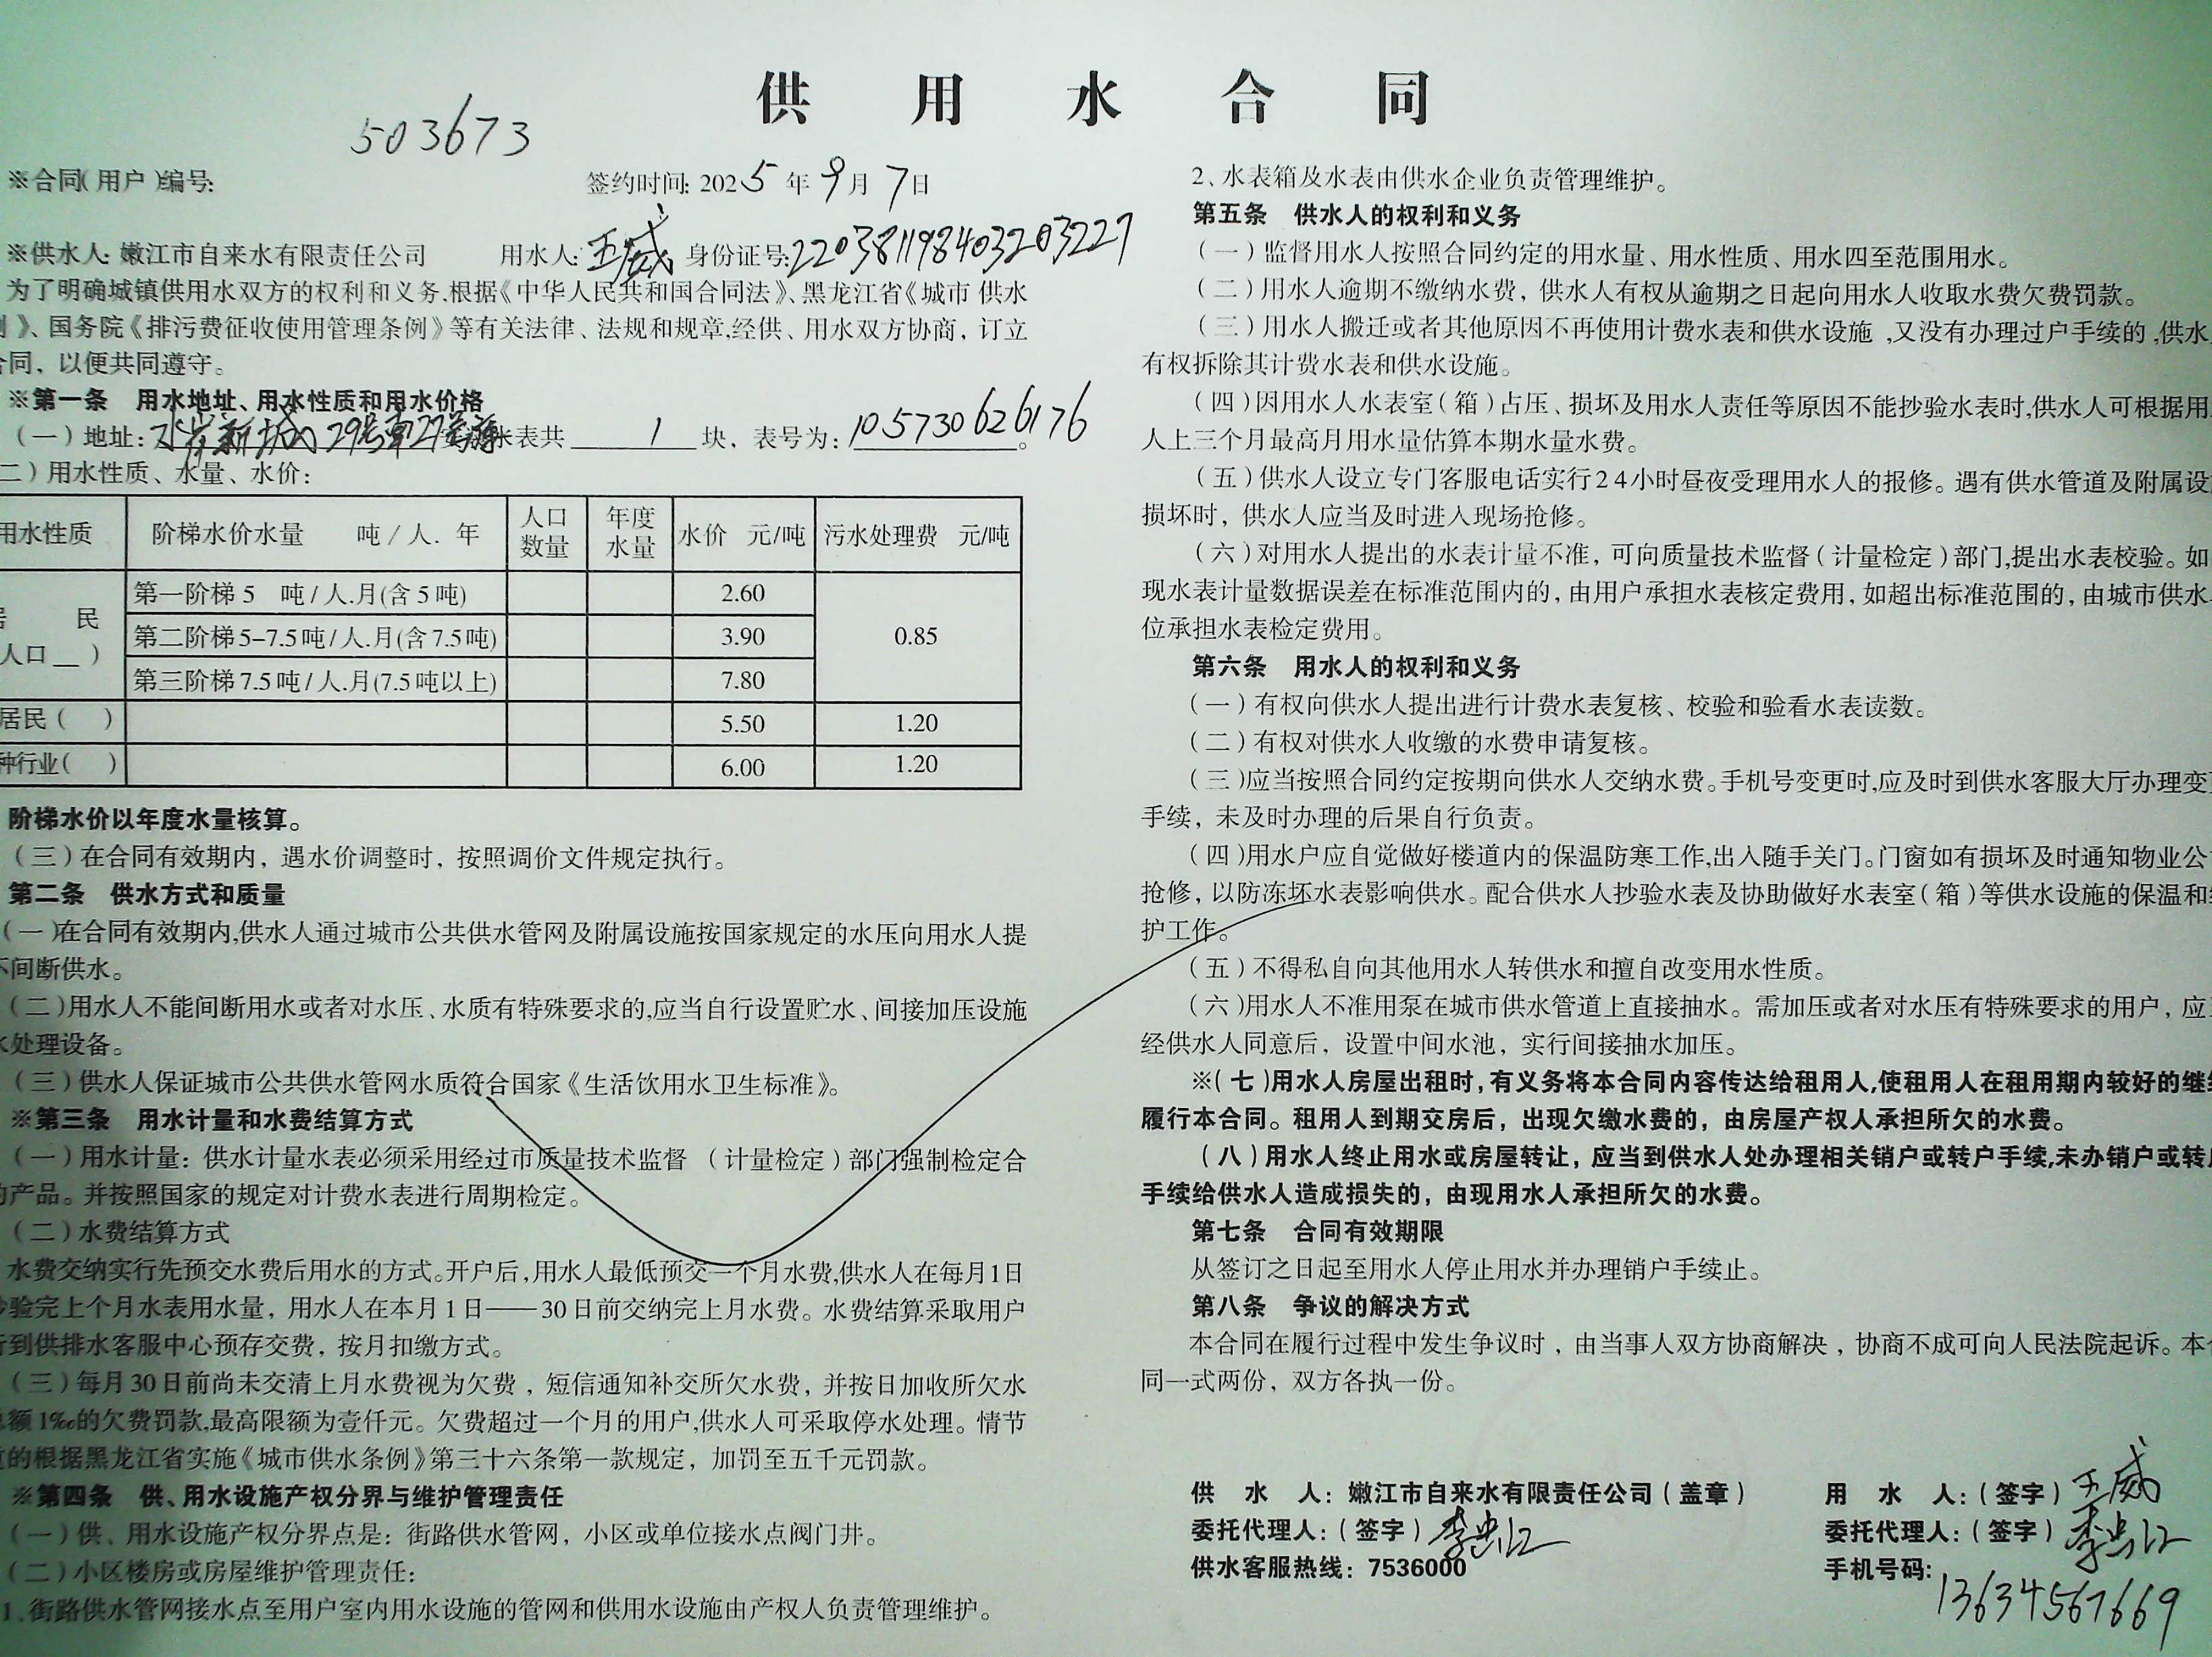 供用水合同
503673
※合同(用户)编号:
签约时间: 2025年9月7日
※供水人: 嫩江市自来水有限责任公司 用水人: 王威 身份证号: 220381198403203227
为了明确城镇供用水双方的权利和义务,根据《中华人民共和国合同法》、黑龙江省《城市供水
》、国务院《排污费征收使用管理条例》等有关法律、法规和规章,经供、用水双方协商，订立
合同，以便共同遵守。
※第一条 用水地址、用水性质和用水价格
(一)地址: 水岸新城29号南27号 水表共 1 块，表号为: 105730626176。
二)用水性质、水量、水价:
用水性质 阶梯水价水量 吨/人.年 人口数量 年度水量 水价 元/吨 污水处理费 元/吨
民 人口__) 第一阶梯5 吨/人.月(含5吨) 2.60 0.85
第二阶梯5-7.5吨/人.月(含7.5吨) 3.90
第三阶梯7.5吨/人.月(7.5吨以上) 7.80
居民( ) 5.50 1.20
种行业( ) 6.00 1.20
阶梯水价以年度水量核算。
(三)在合同有效期内，遇水价调整时，按照调价文件规定执行。
第二条 供水方式和质量
(一)在合同有效期内,供水人通过城市公共供水管网及附属设施按国家规定的水压向用水人提
不间断供水。
(二)用水人不能间断用水或者对水压、水质有特殊要求的,应当自行设置贮水、间接加压设施
水处理设备。
(三)供水人保证城市公共供水管网水质符合国家《生活饮用水卫生标准》。
※第三条 用水计量和水费结算方式
(一)用水计量：供水计量水表必须采用经过市质量技术监督 (计量检定)部门强制检定合
的产品。并按照国家的规定对计费水表进行周期检定。
(二)水费结算方式
水费交纳实行先预交水费后用水的方式。开户后,用水人最低预交一个月水费,供水人在每月1日
抄验完上个月水表用水量，用水人在本月1日——30日前交纳完上月水费。水费结算采取用户
行到供排水客服中心预存交费，按月扣缴方式。
(三)每月30日前尚未交清上月水费视为欠费，短信通知补交所欠水费，并按日加收所欠水
总额1‰的欠费罚款,最高限额为壹仟元。欠费超过一个月的用户,供水人可采取停水处理。情节
的根据黑龙江省实施《城市供水条例》第三十六条第一款规定，加罚至五千元罚款。
※第四条 供、用水设施产权分界与维护管理责任
(一)供、用水设施产权分界点是：街路供水管网，小区或单位接水点阀门井。
(二)小区楼房或房屋维护管理责任:
1、街路供水管网接水点至用户室内用水设施的管网和供用水设施由产权人负责管理维护。
2、水表箱及水表由供水企业负责管理维护。
第五条 供水人的权利和义务
(一)监督用水人按照合同约定的用水量、用水性质、用水四至范围用水。
(二)用水人逾期不缴纳水费，供水人有权从逾期之日起向用水人收取水费欠费罚款。
(三)用水人搬迁或者其他原因不再使用计费水表和供水设施,又没有办理过户手续的,供水
有权拆除其计费水表和供水设施。
(四)因用水人水表室(箱)占压、损坏及用水人责任等原因不能抄验水表时,供水人可根据用
人上三个月最高月用水量估算本期水量水费。
(五)供水人设立专门客服电话实行24小时昼夜受理用水人的报修。遇有供水管道及附属设
损坏时，供水人应当及时进入现场抢修。
(六)对用水人提出的水表计量不准，可向质量技术监督(计量检定)部门,提出水表校验。如
现水表计量数据误差在标准范围内的，由用户承担水表核定费用，如超出标准范围的，由城市供水
位承担水表检定费用。
第六条 用水人的权利和义务
(一)有权向供水人提出进行计费水表复核、校验和验看水表读数。
(二)有权对供水人收缴的水费申请复核。
(三)应当按照合同约定按期向供水人交纳水费。手机号变更时,应及时到供水客服大厅办理变
手续，未及时办理的后果自行负责。
(四)用水户应自觉做好楼道内的保温防寒工作,出入随手关门。门窗如有损坏及时通知物业公
抢修，以防冻坏水表影响供水。配合供水人抄验水表及协助做好水表室(箱)等供水设施的保温和
护工作。
(五)不得私自向其他用水人转供水和擅自改变用水性质。
(六)用水人不准用泵在城市供水管道上直接抽水。需加压或者对水压有特殊要求的用户，应
经供水人同意后，设置中间水池，实行间接抽水加压。
※(七)用水人房屋出租时,有义务将本合同内容传达给租用人,使租用人在租用期内较好的继
履行本合同。租用人到期交房后，出现欠缴水费的，由房屋产权人承担所欠的水费。
(八)用水人终止用水或房屋转让，应当到供水人处办理相关销户或转户手续,未办销户或转
手续给供水人造成损失的，由现用水人承担所欠的水费。
第七条 合同有效期限
从签订之日起至用水人停止用水并办理销户手续止。
第八条 争议的解决方式
本合同在履行过程中发生争议时，由当事人双方协商解决，协商不成可向人民法院起诉。本
同一式两份，双方各执一份。
供 水 人: 嫩江市自来水有限责任公司(盖章) 用 水 人:(签字) 王威
委托代理人:(签字) 李忠江 委托代理人:(签字) 李忠江
供水客服热线: 7536000 手机号码:
13634567669